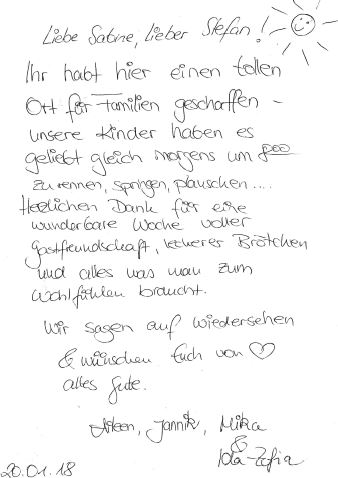 Liebe Sabine, Lieber Stefan!
Ihr habt hier einen tollen
Ort für Familien geschaffen -
unsere Kinder haben es
geliebt gleich morgens um
zu rennen, springen, plauschen....
Herzlichen Dank für eine
wunderbare Woche voller
Gastfreundschaft, leckerer Brötchen
und alles was man zum
Wohlfühlen braucht.
Wir sagen auf wiedersehen
& wünschen Euch von ♡
alles Gute.
Jannik, Mika
&
20.01.18